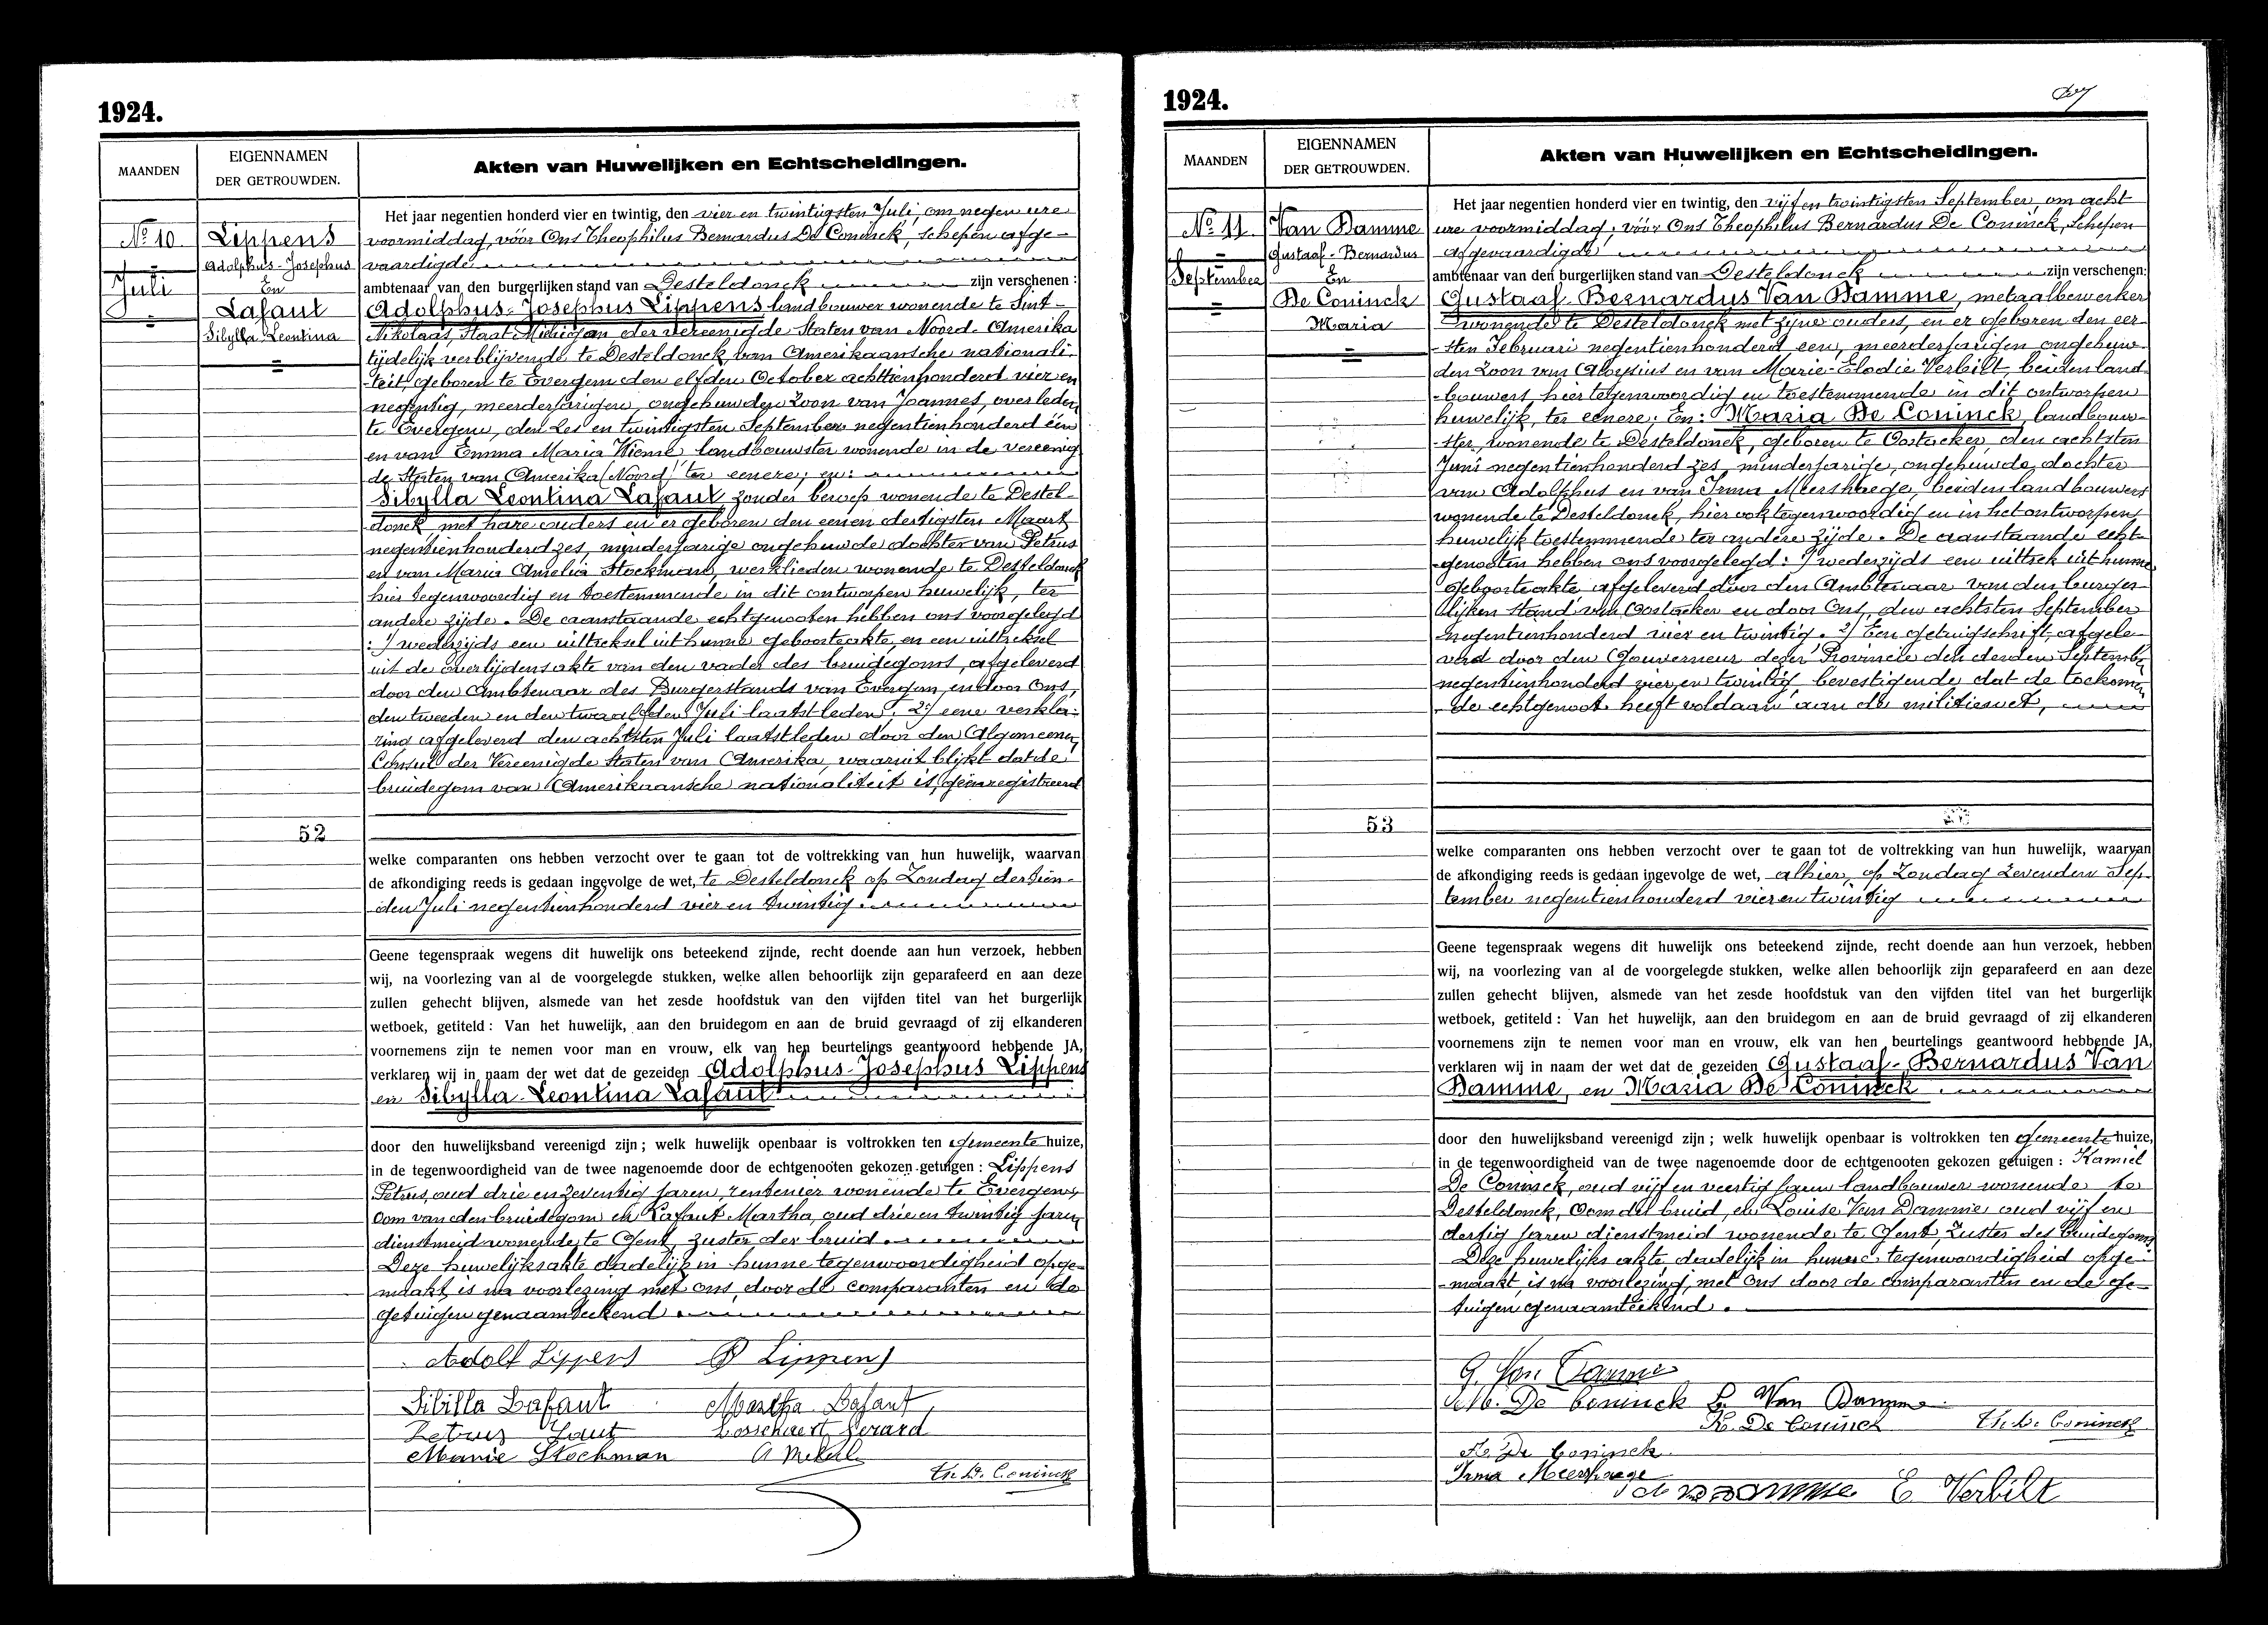 1924.
MAANDEN
EIGENNAMEN
DER GETROUWDEN.
Akten van Huwelijken en Echtscheidingen.
No 10
Juli
Lippens
Adolphus-Josephus
En
Lafaut
Sibylla-Leontina
52
Het jaar negentien honderd vier en twintig, den vier en twintigsten Juli, om negen ure
voormiddag, vóór Ons Theophilus Bernardus De Coninck, schepen afge-
vaardigde
ambtenaar van den burgerlijken stand van Desteldonck zijn verschenen :
Adolphus-Josephus Lippens landbouwer wonende te Sint-
Nikolaas, Staat Michigan, der vereenigde Staten van Noord-Amerika
tijdelijk verblijvende te Desteldonck, van Amerikaansche nationali-
teit, geboren te Evergem den elfden October achttienhonderd vier en
negentig, meerderjarigen, ongehuwden zoon van Joannes, overleden
te Evergem, den zes en twintigsten September negentienhonderd één
en van Emma Maria Wiemé landbouwster wonende in de vereenig-
de Staten van Amerika (Noord) ter eenere; en:
Sibylla Leontina Lafaut zonder beroep wonende te Destel-
donck, met hare ouders en er geboren den eenen dertigsten Maart
negentienhonderd zes, minderjarige ongehuwde dochter van Petrus
en van Maria Amelia Stockman, werklieden wonende te Desteldonck
hier tegenwoordig en toestemmende in dit ontworpen huwelijk, ter
andere zijde. De aanstaande echtgenooten hebben ons voorgelegd
: 1/ wederzijds een uittreksel uit hunne geboorteakte, en een uittreksel
uit de overlijdensakte van den vader des bruidegoms, afgeleverd
door den Ambtenaar des Burgerstands van Evergem, en door Ons,
den tweeden en den twaalfden Juli laatstleden. 2/ eene verkla-
ring afgeleverd den achtsten Juli laatstleden door den Algemeenen
Consul der Vereenigde Staten van Amerika, waaruit blijkt dat de
bruidegom van Amerikaansche nationaliteit is, geïnregistreerd
welke comparanten ons hebben verzocht over te gaan tot de voltrekking van hun huwelijk, waarvan
de afkondiging reeds is gedaan ingevolge de wet, te Desteldonck op Zondag dertien-
den Juli negentienhonderd vier en twintig
Geene tegenspraak wegens dit huwelijk ons beteekend zijnde, recht doende aan hun verzoek, hebben
wij, na voorlezing van al de voorgelegde stukken, welke allen behoorlijk zijn geparafeerd en aan deze
zullen gehecht blijven, alsmede van het zesde hoofdstuk van den vijfden titel van het burgerlijk
wetboek, getiteld : Van het huwelijk, aan den bruidegom en aan de bruid gevraagd of zij elkanderen
voornemens zijn te nemen voor man en vrouw, elk van hen beurtelings geantwoord hebbende JA,
verklaren wij in naam der wet dat de gezeiden Adolphus-Josephus Lippens
en Sibylla-Leontina Lafaut
door den huwelijksband vereenigd zijn ; welk huwelijk openbaar is voltrokken ten gemeentehuize,
in de tegenwoordigheid van de twee nagenoemde door de echtgenooten gekozen getuigen : Lippens
Petrus, oud drie en zeventig jaren, rentenier wonende te Evergem,
Oom van den bruidegom en Lafaut Martha, oud drie en twintig jaren
dienstmeid wonende te Gent, zuster der bruid
Deze huwelijksakte dadelijk in hunne tegenwoordigheid opge-
maakt, is na voorlezing met ons, door de comparanten en de
getuigen genaamteekend
Adolf Lippens P Lippens
Sibilla Lafaut Martha Lafaut
Petrus Faut Cosschaert Gerard
Marie Stockman
Th. De Coninck
1924.
MAANDEN
EIGENNAMEN
DER GETROUWDEN.
Akten van Huwelijken en Echtscheidingen.
No 11
September
Van Damme
Gustaaf-Bernardus
En
De Coninck
Maria
53
Het jaar negentien honderd vier en twintig, den vijf en twintigsten September, om acht
ure voormiddag, vóór Ons Theophilus Bernardus De Coninck, Schepen
afgevaardigde
ambtenaar van den burgerlijken stand van Desteldonck zijn verschenen:
Gustaaf-Bernardus Van Damme, metaalbewerker
wonende te Desteldonck met zijne ouders, en er geboren den eer-
-sten Februari negentienhonderd een, meerderjarigen ongehuw-
den Zoon van Aloysius en van Marie-Elodie Verbilt, beiden land-
-bouwers, hier tegenwoordig en toestemmende in dit ontworpen
huwelijk, ter eenere; En: Maria De Coninck, landbouw-
-ster, wonende te Desteldonck, geboren te Oostacker, den achtsten
Juni negentienhonderd zes, minderjarige, ongehuwde, dochter
van Adolphus en van Irma Meershaege, beiden landbouwers
wonende te Desteldonck, hier ook tegenwoordig en in het ontworpen
huwelijk toestemmende ter andere zijde. De aanstaande echt-
-genooten hebben ons voorgelegd: 1/ wederzijds een uittrek uit hunne
geboorteakte afgeleverd door den Ambtenaar van den burger-
lijken stand van Oostacker en door Ons, den achtsten September
negentienhonderd vier en twintig. 2/ Een getuigschrift afgele-
verd door den Gouverneur dezer Provincie den derden September
negentienhonderd vier en twintig, bevestigende dat de toekomen-
-de echtgenoot heeft voldaan aan de militiewet,
welke comparanten ons hebben verzocht over te gaan tot de voltrekking van hun huwelijk, waarvan
de afkondiging reeds is gedaan ingevolge de wet, alhier, op Zondag zevenden Sep-
tember negentienhonderd vier en twintig
Geene tegenspraak wegens dit huwelijk ons beteekend zijnde, recht doende aan hun verzoek, hebben
wij, na voorlezing van al de voorgelegde stukken, welke allen behoorlijk zijn geparafeerd en aan deze
zullen gehecht blijven, alsmede van het zesde hoofdstuk van den vijfden titel van het burgerlijk
wetboek, getiteld : Van het huwelijk, aan den bruidegom en aan de bruid gevraagd of zij elkanderen
voornemens zijn te nemen voor man en vrouw, elk van hen beurtelings geantwoord hebbende JA,
verklaren wij in naam der wet dat de gezeiden Gustaaf-Bernardus Van
Damme, en Maria De Coninck
door den huwelijksband vereenigd zijn ; welk huwelijk openbaar is voltrokken ten gemeentehuize,
in de tegenwoordigheid van de twee nagenoemde door de echtgenooten gekozen getuigen : Kamiel
De Coninck, oud vijf en veertig jaren landbouwer wonende te
Desteldonck, Oom der bruid, en Louise Van Damme oud vijf en
dertig jaren dienstmeid wonende te Gent, Zuster des bruidegoms
Deze huwelijks akte dadelijk in hunne tegenwoordigheid opge-
-maakt, is na voorlezing, met Ons door de comparanten en de ge-
tuigen genaamteekend.
G. Van Damme
M. De Coninck L. Van Damme
K. De Coninck Th. De Coninck
A. De Coninck
Irma Meershaege
Van Damme E Verbilt